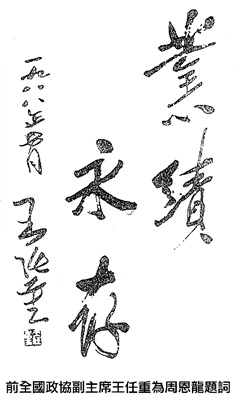 業績
永存
一九八八年六月
王任重
前全國政協副主席王任重為周恩龍題詞